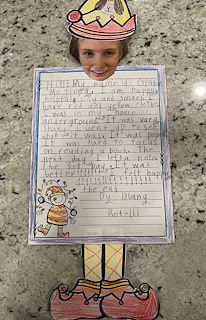 Hi!!! My name is
I am happy
helpful silly and smart.
I have an yellow
I was in my house
underground. It was very
shaky. I went up to see
what it was. It was
It was hard to focus
on reading a book. The
next day I left a note.
The 3rd day it was
better!!!! I felt happy
!!!!!!!!!!!!!!!!!!!!
the end
by Islany
Rotelli